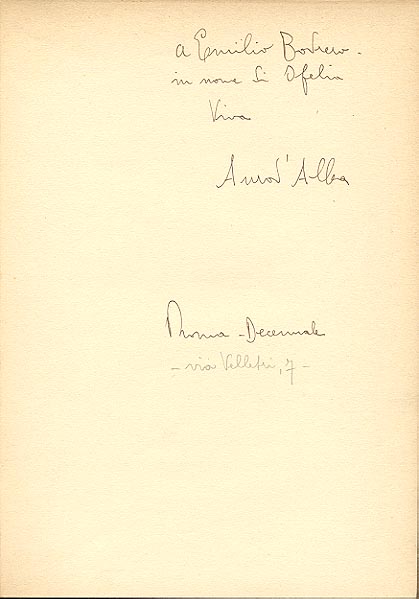 a Emilio Bodrero.
in nome di Ofelia
Viva
Auro d'Alba
Roma - Decennale
- via Velletri, 7 -